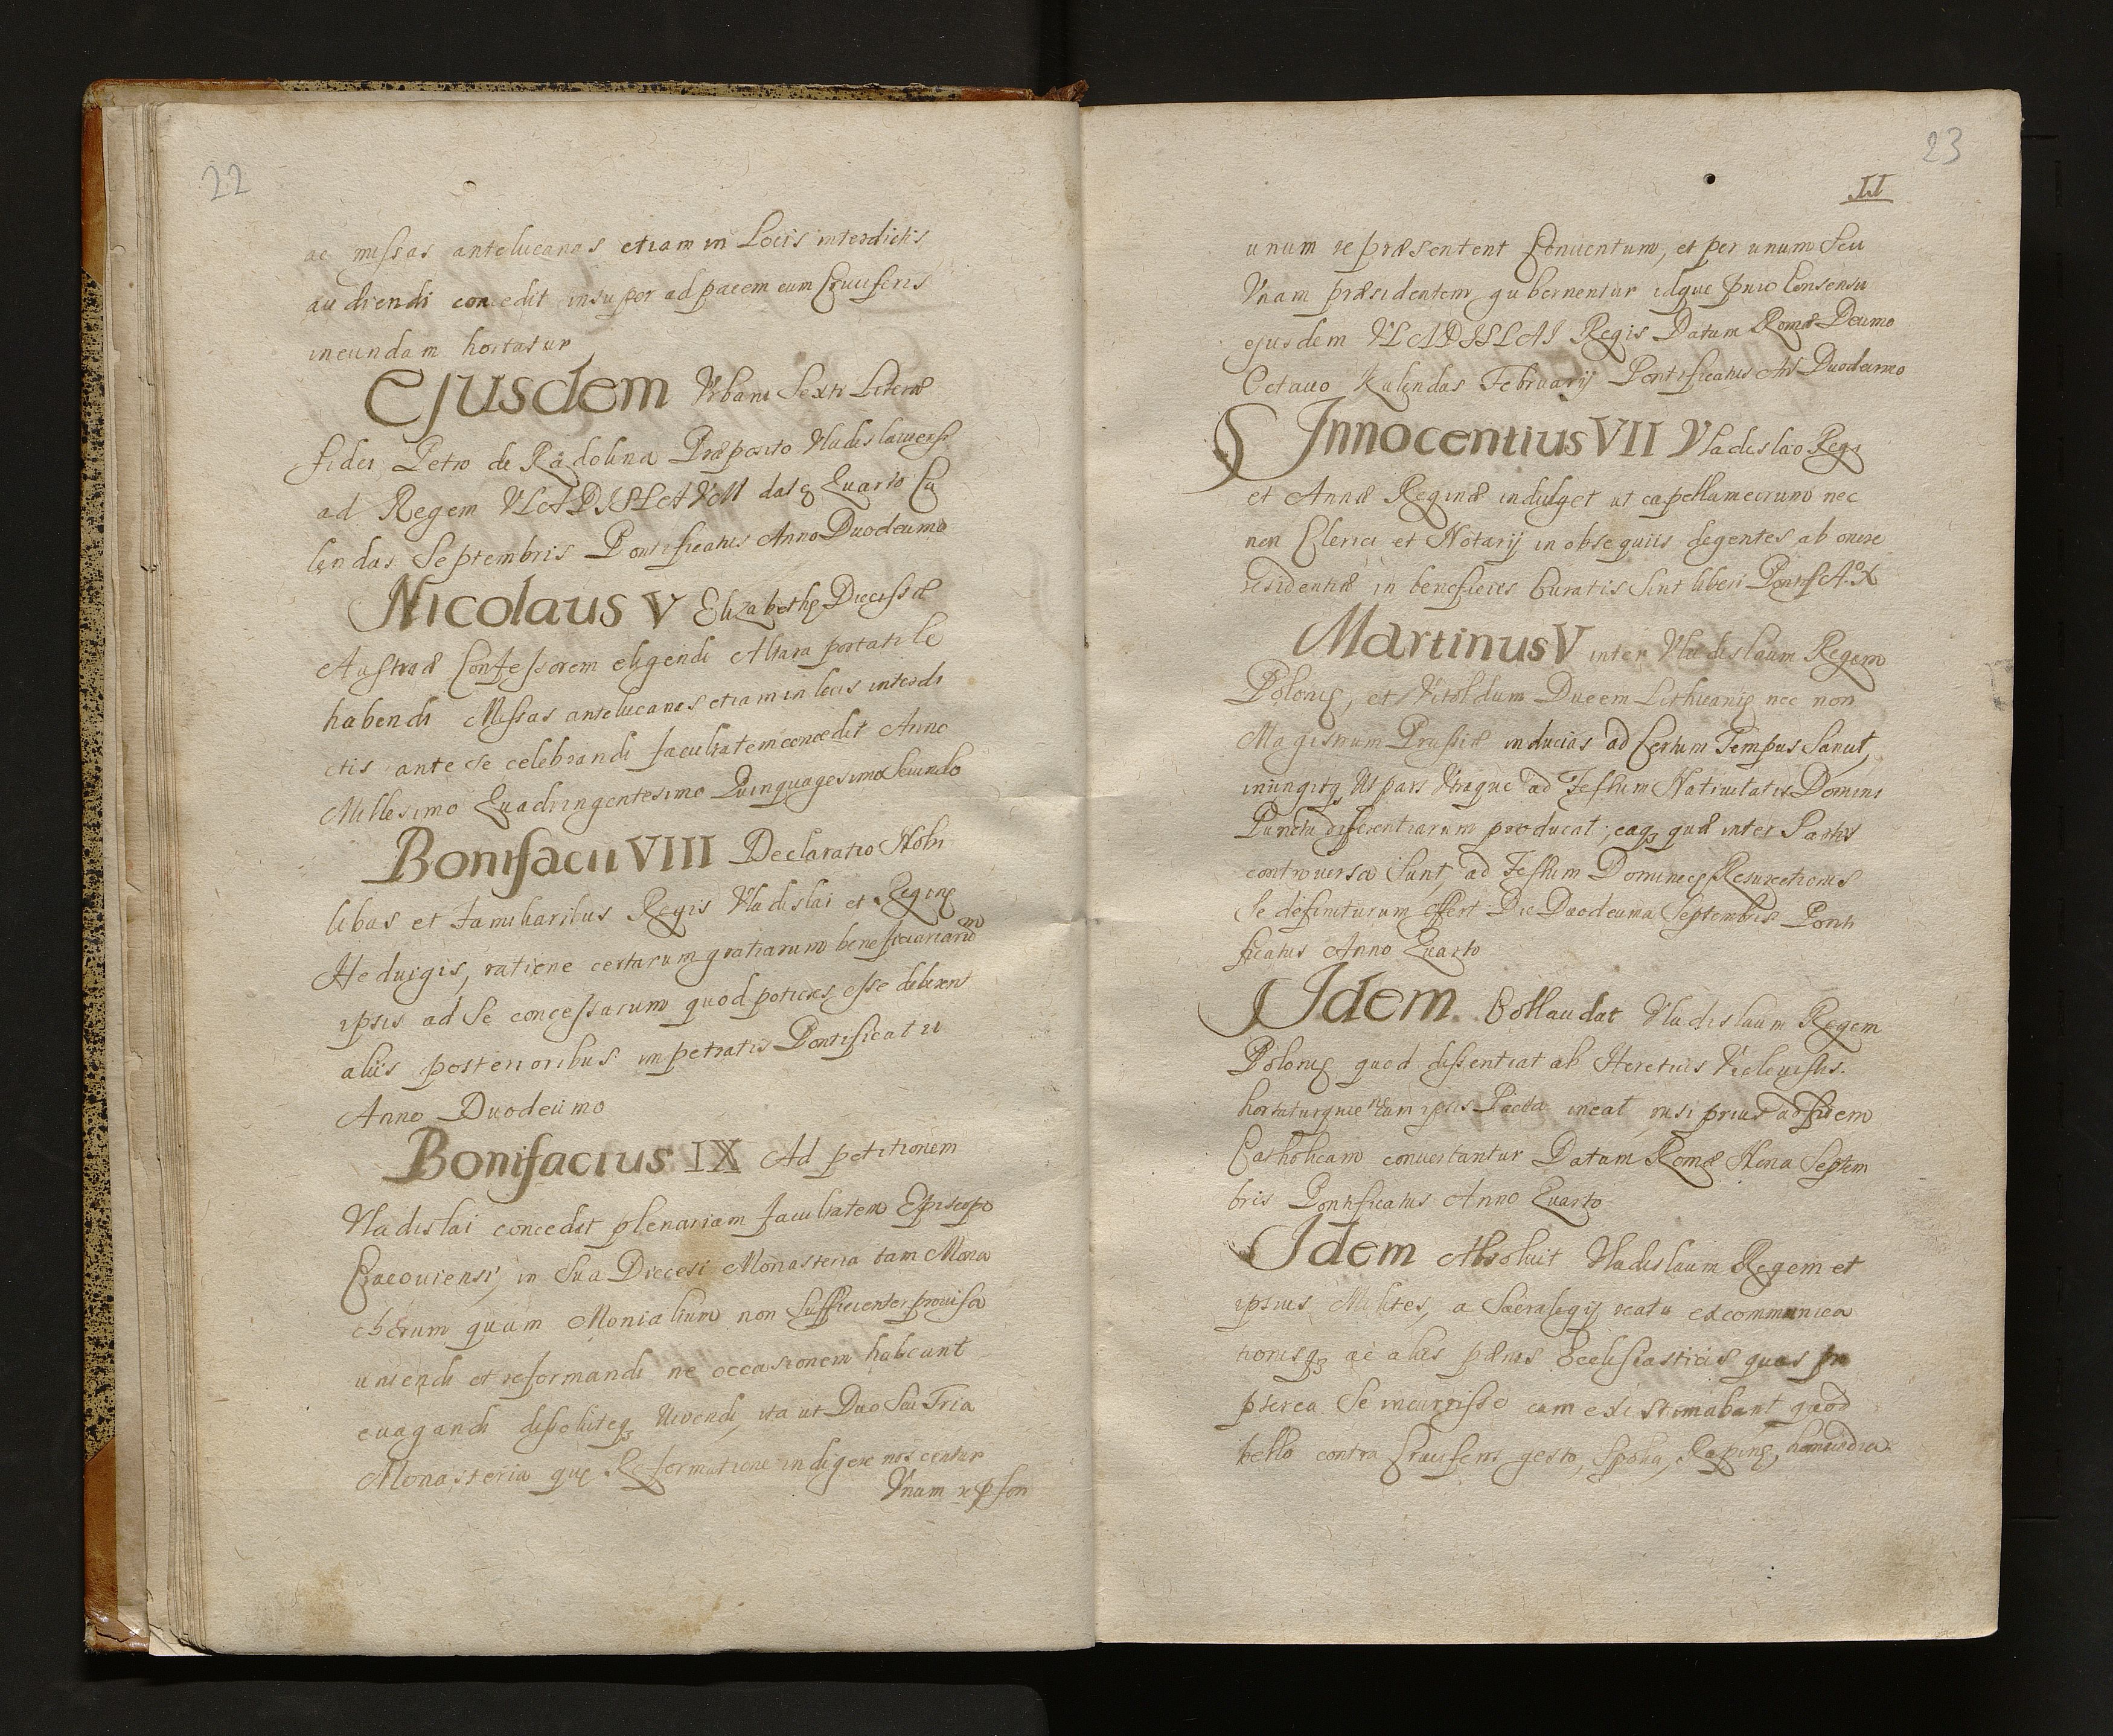 22
ac missas antelucanas etiam in Locis interdictis
audiendi concedit insuper ad pacem cum Cruciferis
ineundam hortatur
Ejusdem Vrbani Sexti Literæ
fidei Petro de Radolina Præposito Vladislauiensi
ad Regem VLADISLAVM datę Quarto Ca
lendas Septembris Pontificatus Anno Duodecimo
Nicolaus V Elizabethę Ducissæ
Austriæ Confessorem eligendi Altare portatile
habendi Missas antelucanas etiam in locis interdi
ctis ante se celebrandi facultatem concedit Anno
Millesimo Quadringentesimo Quinquagesimo Secundo
Bonifacii VIII Declaratio Nobi
libus et Familiaribus Regis Vladislai et Reginę
Heduigis, ratione certarum gratiarum beneficiariarum
ipsis ad Se concessarum quod potiores esse deberent
aliis posterioribus impetratis Pontificatu
Anno Duodecimo
Bonifacius IX Ad petitionem
Vladislai concedit plenariam facultatem Episcopo
Cracouiensi, in Sua Diecesi Monasteria tam Mona
chorum quam Monialium non Sufficienter prouisa
uniendi et reformandi ne occasionem habeant
euagandi dissoluteq; Viuendi, ita ut Duo Seu Tria
Monasteria quę Reformatione indigere noscentur
Vnam repsen
23
II
unum repræsentent Conuentum, et per unum Seu
Vnam præsidentem gubernentur idque Senso Consensu
ejusdem VLADISLAI Regis Datum Romæ Decimo
Octauo Kalendas Februarij Pontificatus An Duodecimo
Innocentius VII Vladislao Regi
et Annæ Reginæ indulget ut capellani eorum nec
non Clerici et Notarij in obsequiis degentes ab onere
residentiæ in beneficiis Curatis Sint liberi Pontif A.º X
Martinus V inter Vladislaum Regem
Polonię, et Vitoldum Ducem Lithuanię nec non
Magistrum Prussiæ inducias ad Certum Tempus Sancit,
iniungitq; Vt pars Vtraque ad Festum Natiuitatis Domini
Puncta differentiarum producat; eaq; quæ inter Partes
controuersa Sunt, ad Festum Dominicę Resurectionis
Se definiturum offert Die Duodecima Septembris Ponti
ficatus Anno Quarto
Idem Collaudat Vladislaum Regem
Polonię quod dissentiat ab Hereticis Viclouistis.
hortaturque ne cum ipsis Pacta ineat, nisi prius ad fidem
Catholicam conuertantur Datum Romæ Nona Septem
bris Pontificatus Anno Quarto
Idem Absoluit Vladislaum Regem et
ipsius Milites, a Sacralegij reatu excommunica
tionisq; ac aliis pænis Ecclesiasticis quas pro
pterea Se incurrisse cum existimabant quod
bello contra Cruciferis gesto, Spolia, Rapinę, homicidia